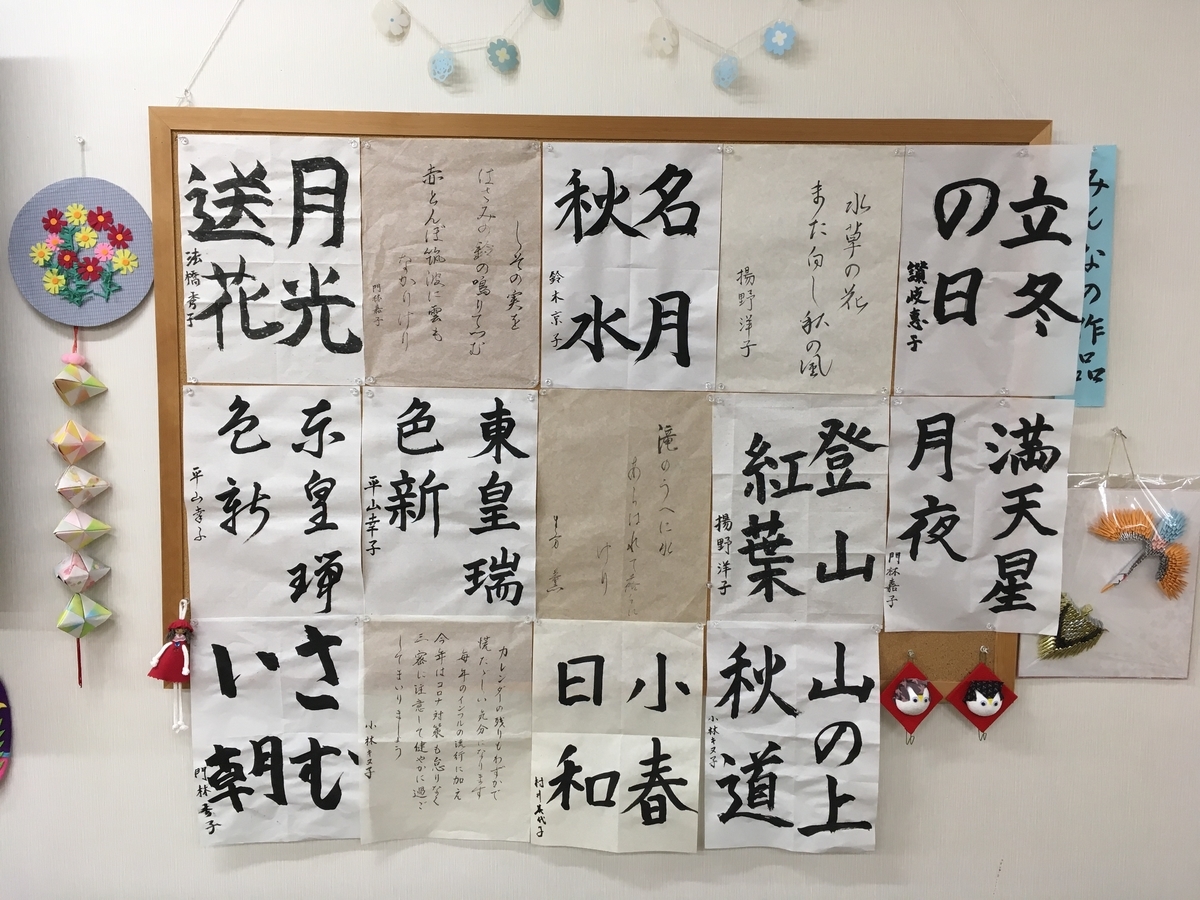 みんなの作品
立冬
の日
讃岐恵子
水草の花
また白し秋の風
揚野洋子
名月
秋水
鈴木京子
しその実を
はさみの鈴の鳴りてつむ
赤とんぼ筑波に雲も
なかりけり
門林嘉子
月光
送花
法橋秀子
満天星
月夜
門林嘉子
登山
紅葉
揚野洋子
滝のうへに水
けり
東皇瑞
色新
平山幸子
東皇瑞
色新
平山幸子
山の上
秋道
小林キヌ子
小春
日和
村井美代子
カレンダーの残りもわずかで
慌ただしい気分になります
毎年のインフルの流行に加え
今年はコロナ対策も怠りなく
三密に注意して健やかに過ご
してまいりましょう
小林キヌ子
さむ
い朝
門林秀子